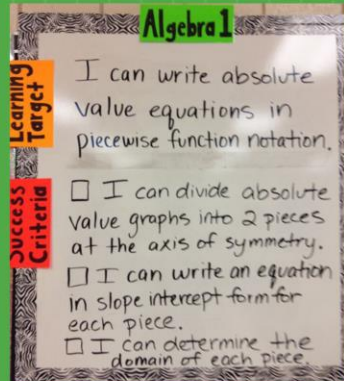 Algebra 1
Learning
Target
I can write absolute
value equations in
piecewise function notation.
Success
Criteria
I can divide absolute
value graphs into 2 pieces
at the axis of symmetry.
I can write an equation
in slope intercept form for
each piece.
I can determine the
domain of each piece.